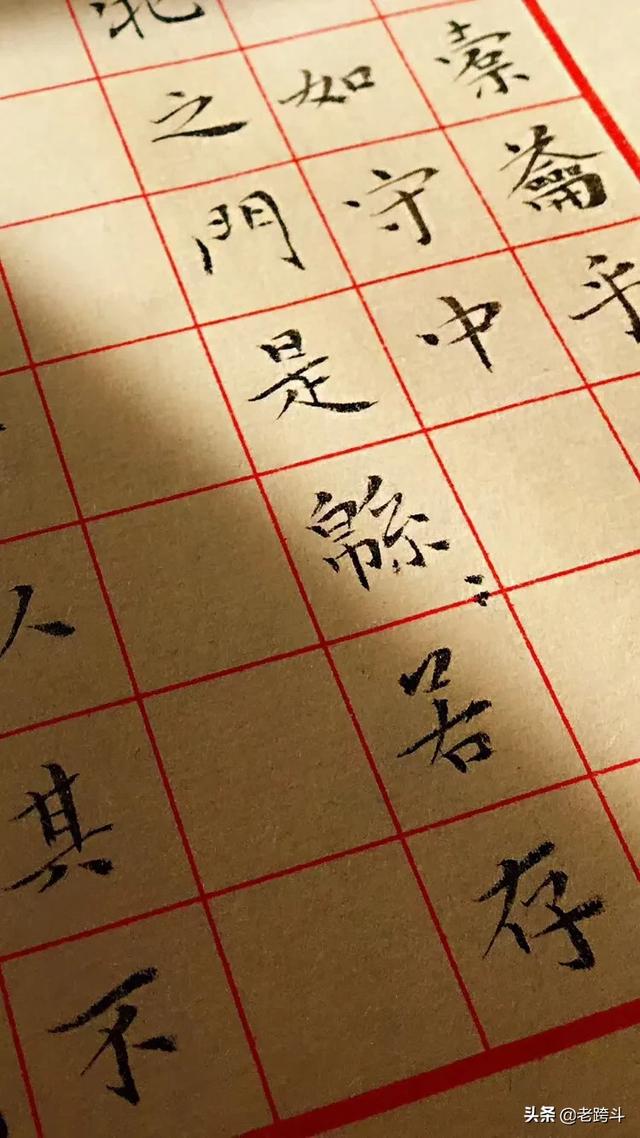 橐籥乎
如守中
牝之門是緜〻若存
人其不
头条 @老跨斗